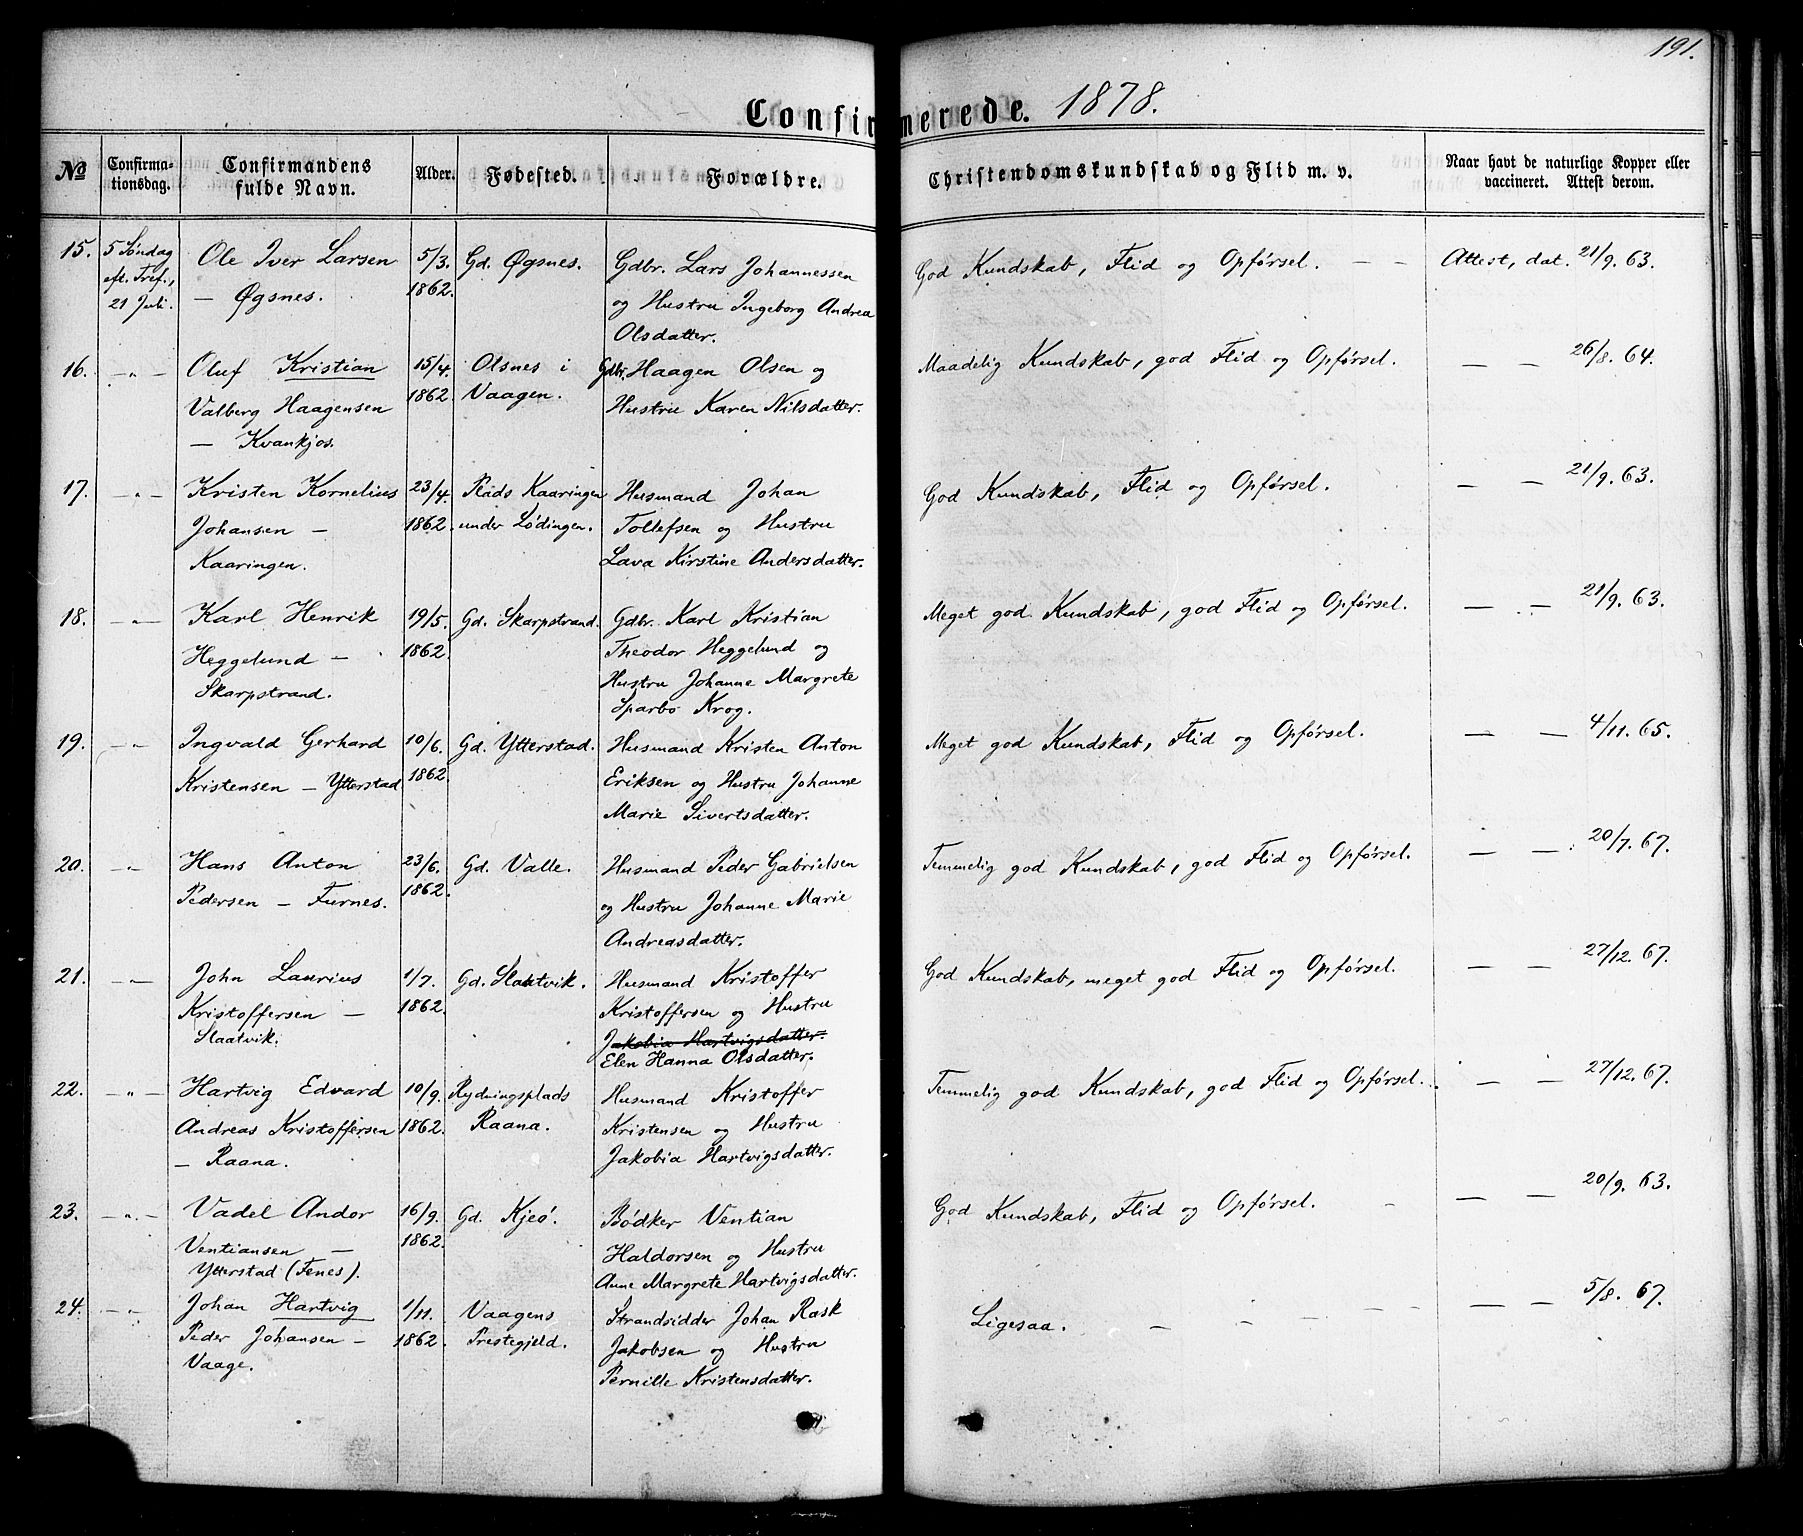 191.
Confirmerede. 1878.
No
Confirma-
tionsdag.
Confirmandens
fulde Navn.
Alder.
Fødested.
Forældre.
Christendomskundskab og Flid m. v.
Naar havt de naturlige Kopper eller
vaccineret. Attest derom.
15. 5 Søndag Ole Iver Larsen 5/3. Gd. Øgsnes. Gdbr. Lars Johannessen God Kundskab, Flid og Opførsel. — — Attest, dat. 21/9. 63.
eft. Tref., — Øgsnes. 1862. og Hustru Ingeborg Andrea
21 Juli. Olsdatter.
16. — „ — Oluf Kristian 15/4. Olsnes i Gdbr. Haagen Olsen og Maadelig Kundskab, god Flid og Opførsel. — — 26/8. 64.
Valberg Haagensen 1862. Vaagen. Hustru Karen Nilsdatter.
— Kvankjos.
17. — „ — Kristen Kornelius 23/4. Pads Kaaringen Husmand Johan God Kundskab, Flid og Opførsel. — — 21/9. 63.
Johansen — 1862. under Lødingen. Tollefsen og Hustru
Kaaringen. Lava Kirstine Andersdatter.
18. — „ — Karl Henrik 19/5. Gd. Skarpstrand. Gdbr. Karl Kristian Meget god Kundskab, god Flid og Opførsel. — — 21/9. 63.
Heggelund — 1862. Theodor Heggelund og
Skarpstrand. Hustru Johanne Margrete
Sparbo Krog.
19. — „ Ingvald Gerhard 10/6. Gd. Ytterstad. Husmand Kristen Anton Meget god Kundskab, Flid og Opførsel. — — 4/11. 65.
Kristensen — Ytterstad 1862. Eriksen og Hustru Johanne
Marie Sivertsdatter.
20. — „ — Hans Anton 23/6. Gd. Valle. Husmand Peder Gabrielsen Temmelig god Kundskab, god Flid og Opførsel. — — 20/7. 67.
Pedersen — Furnes. 1862. og Hustru Johanne Marie
Andreasdatter.
21. — „ — John Laurius 1/7. Gd. Slaatvik. Husmand Kristoffer God Kundskab, meget god Flid og Opførsel. — — 27/12. 67.
Kristoffersen — 1862. Kristoffersen og Hustru
Slaatvik. Jakobia Hartvigsdatter.
Elen Hanna Olsdatter.
22. — „ — Hartvig Edvard 10/9. Rydningsplads Husmand Kristoffer Temmelig god Kundskab, god Flid og Opførsel. — — 27/12. 67.
Andreas Kristoffersen 1862. Raana. Kristensen og Hustru
— Raana. Jakobia Hartvigsdatter.
23. — „ — Vadel Andor 16/9. Gd. Kjeø. Bødker Ventian God Kundskab, Flid og Opførsel. — — 20/9. 63.
Ventiansen — 1862. Haldorsen og Hustru
Ytterstad (Fenes). Anne Margrete Hartvigsdatter.
24. — „ Johan Hartvig 1/11. Vaagens Strandsidder Johan Rask Ligesaa. — — — 5/8. 67.
Peder Johansen — 1862. Prestegjeld. Jakobsen og Hustru
Vaage. Pernille Kristensdatter.